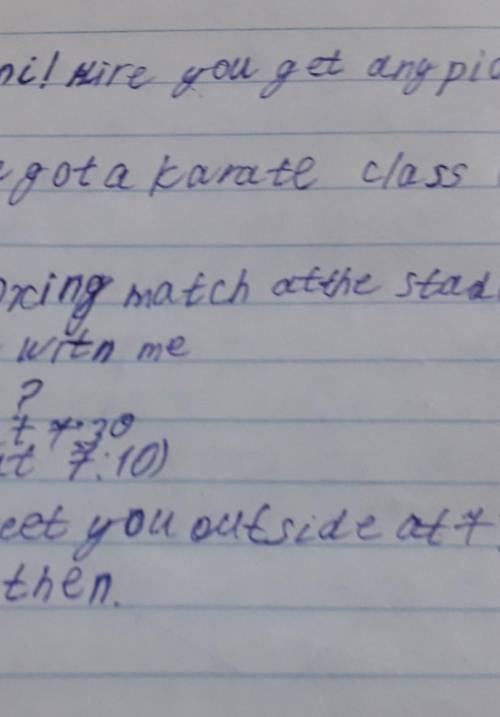 ni! Hire you get any pic
got a karate class
oxing match at the stad
with me
?
t 7:30
at 7:10)
eet you outside at 7
then.